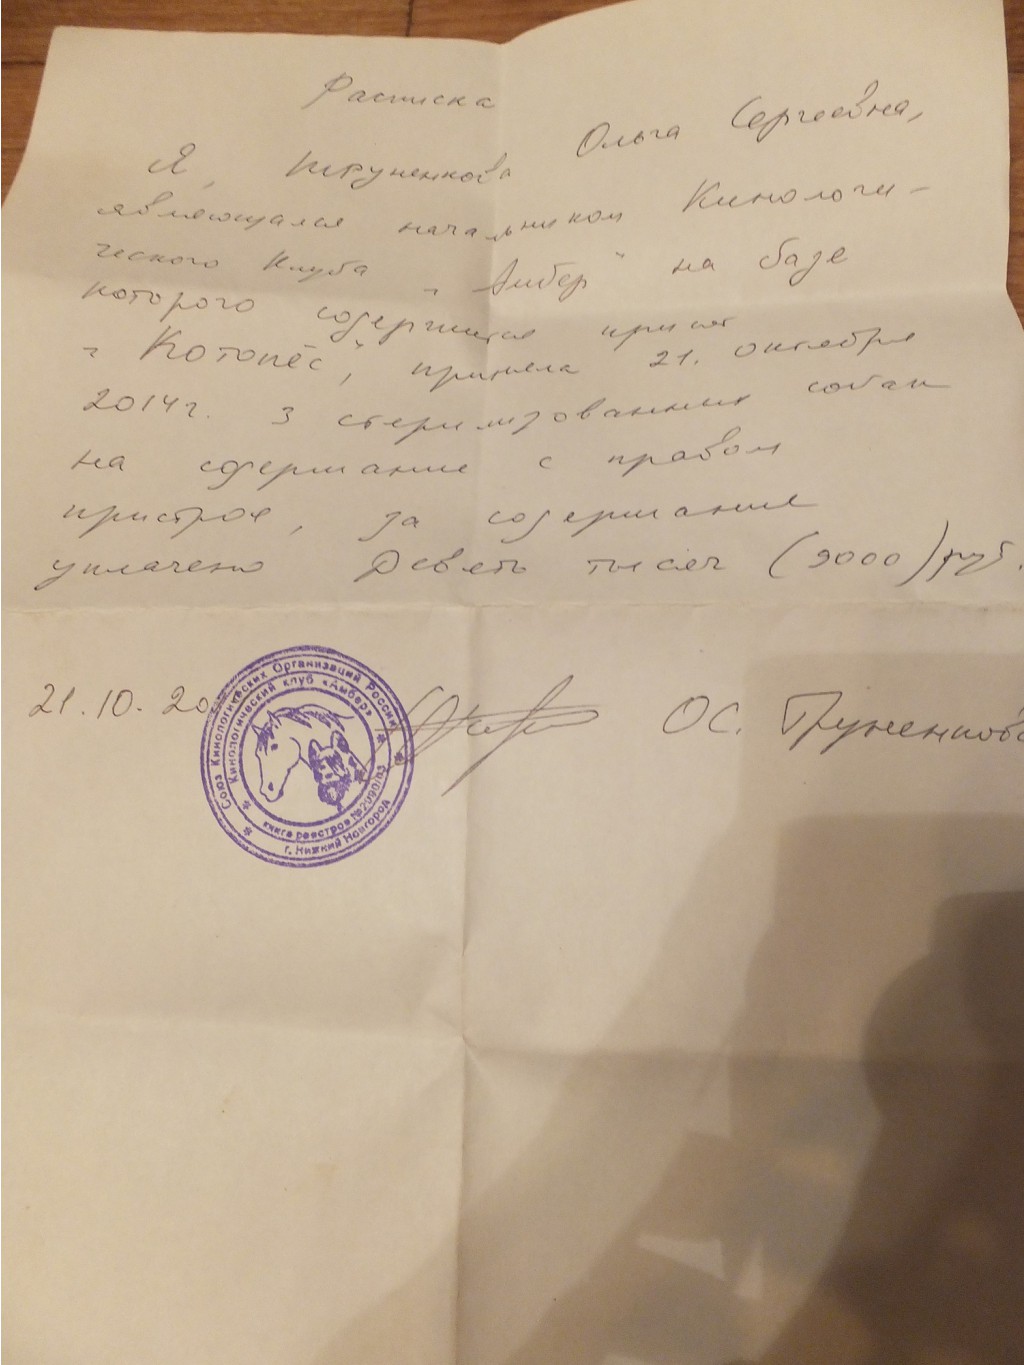 Расписка
Я, Труненкова Ольга Сергеевна,
являющаяся начальником Кинологи-
ческого клуба "Амбер" на базе
которого содержится приют
"Котопёс", приняла 21. октября
2014г. 3 стерилизованных собак
на содержание с правом
пристроя, за содержание
уплачено Девять тысяч (9000) руб.
21.10.20
О.С. Труненкова
Союз Кинологических Организаций России
Кинологический клуб «Амбер»
книга реестров №2990/03
г. Нижний Новгород